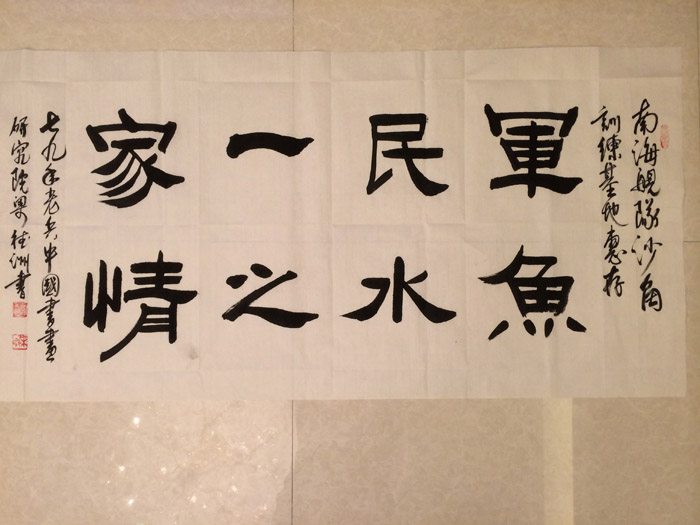 南海舰隊沙角
訓練基地惠存
軍民一家
魚水之情
七九年老兵中國書畫
研究院梁洲書